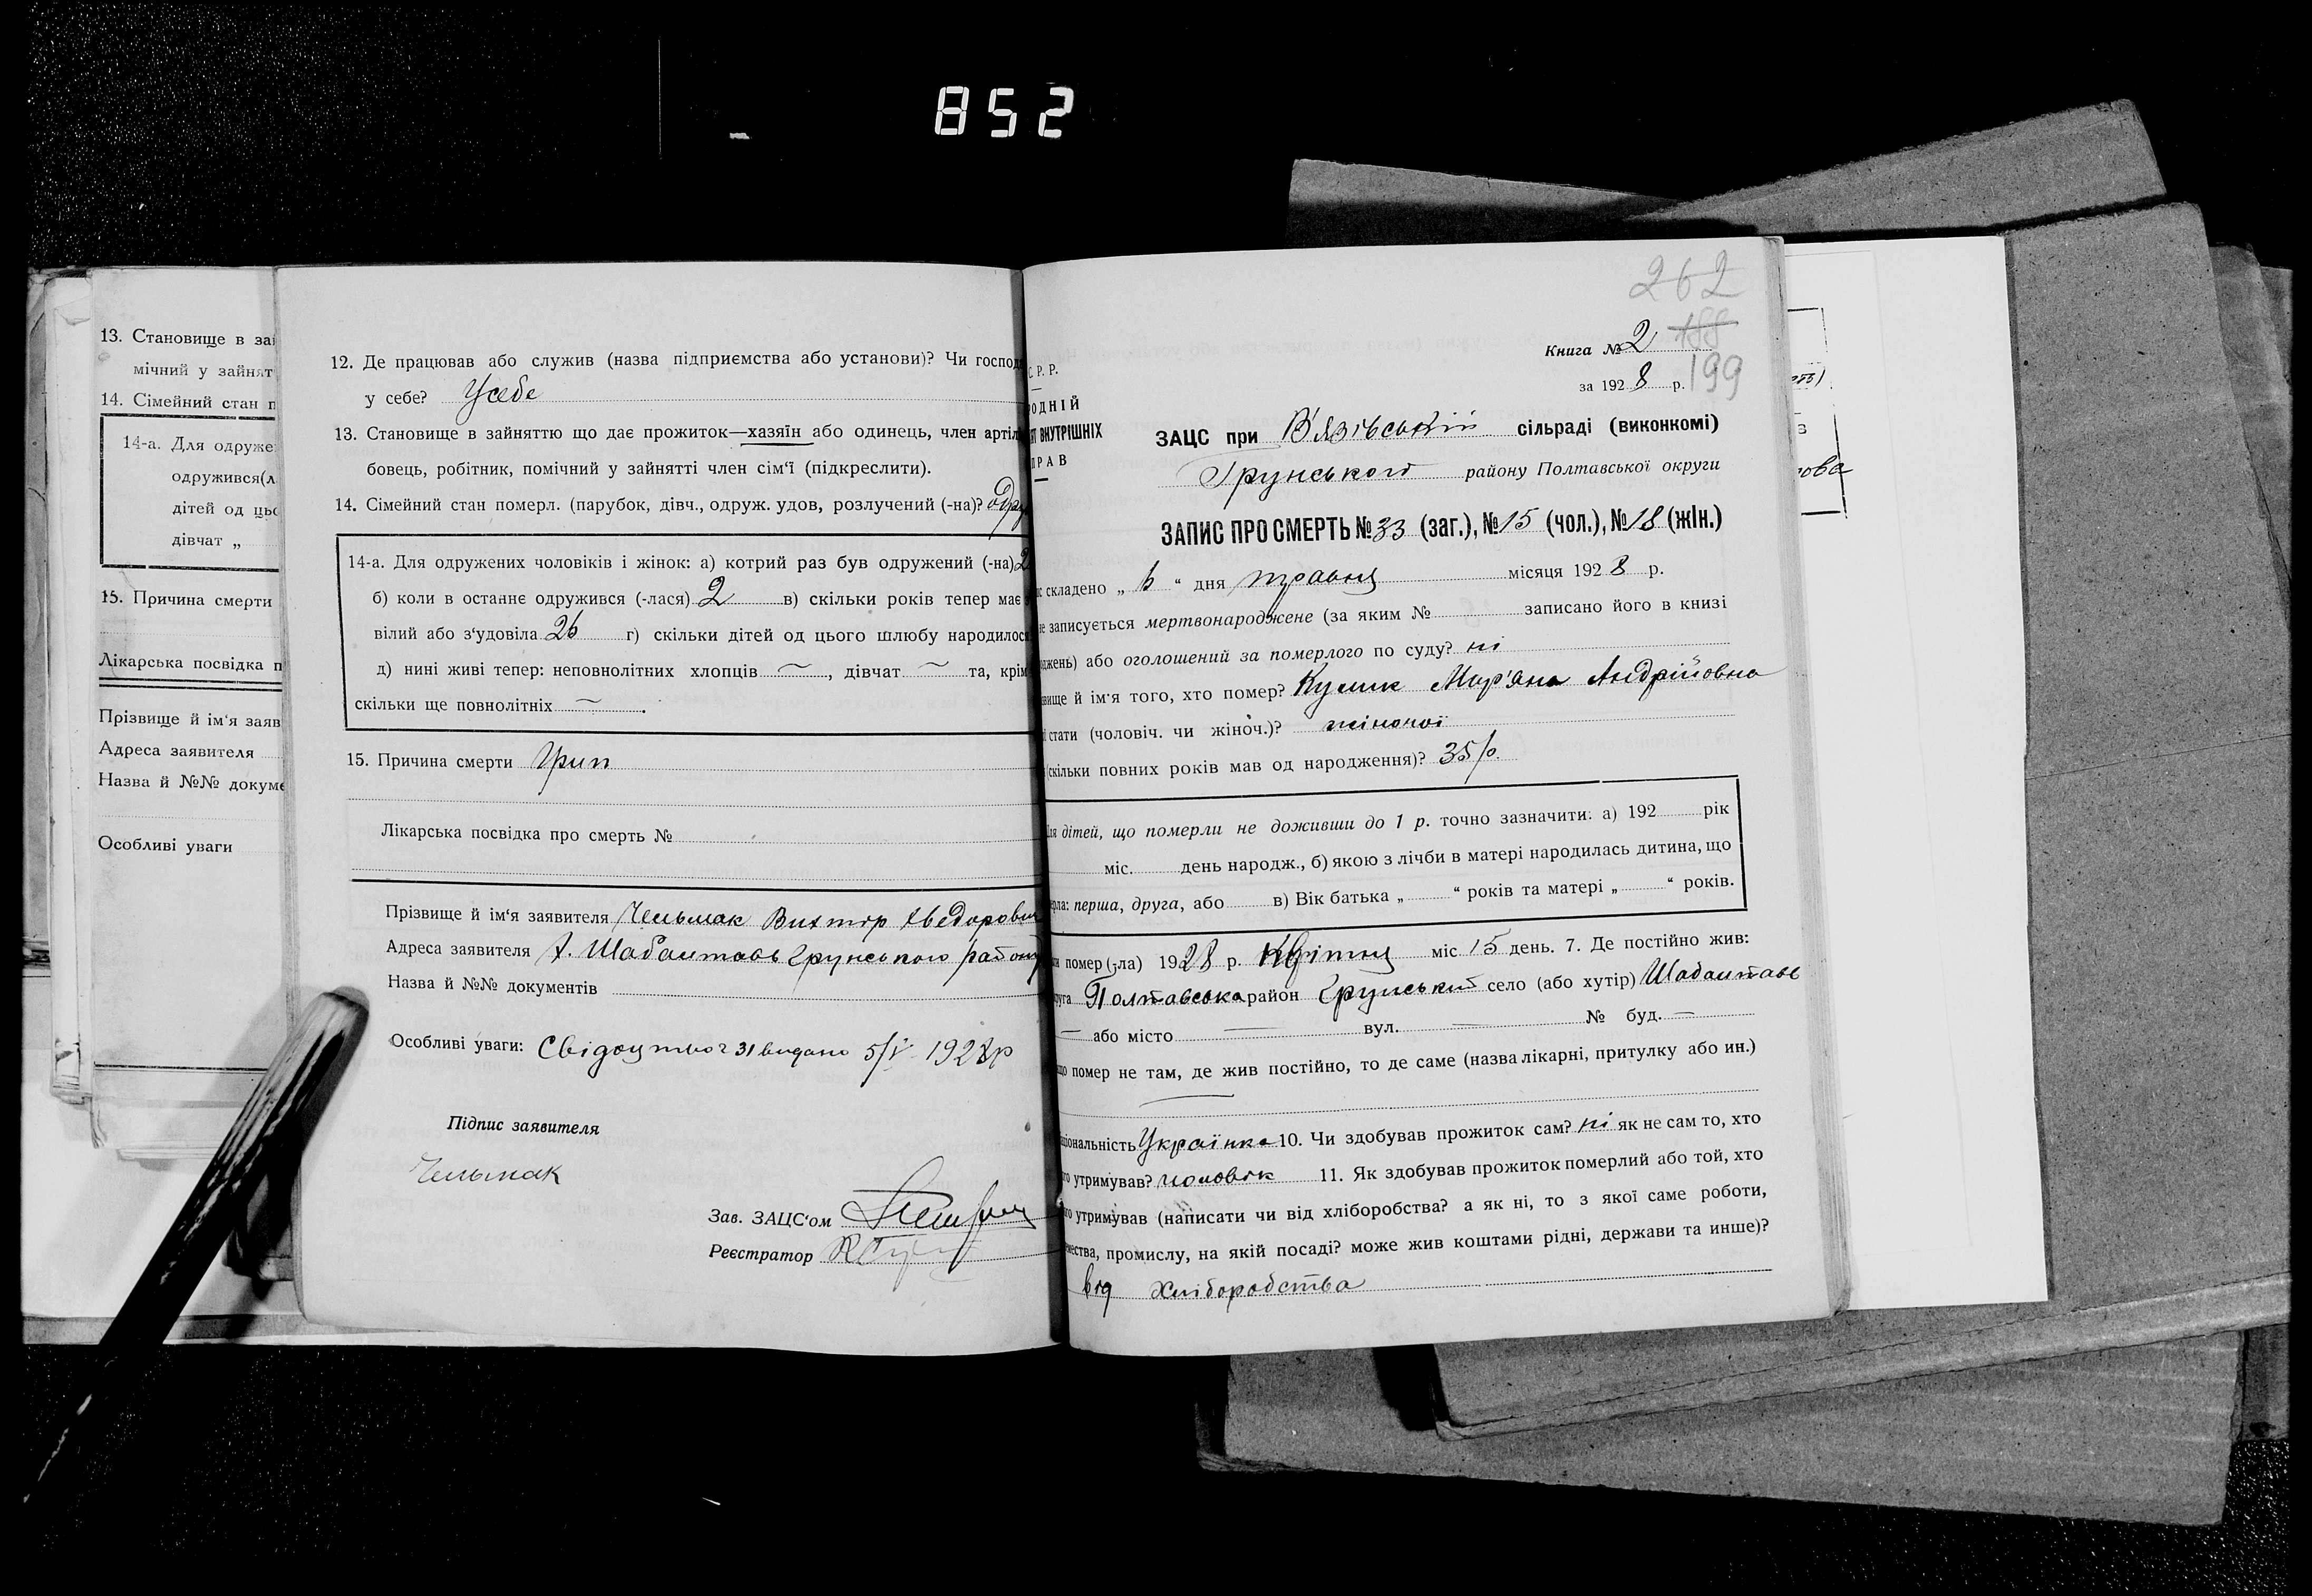 852
13. Становище в зай
мічний у зайнят
14. Сімейний стан п
14-а. Для одруже
одружився(л
дітей од цьо
дівчат „
15. Причина смерти
Лікарська посвідка п
Прізвище й ім'я заяв
Адреса заявителя
Назва й №№ докуме
Особливі уваги
12. Де працював або служив (назва підприємства або установи)? Чи господ
у себе? Усебе
13. Становище в зайняттю що дає прожиток—хазяїн або одинець, член артіл
бовець, робітник, помічний у зайнятті член сім'ї (підкреслити).
14. Сімейний стан померл. (парубок, дівч., одруж. удов, розлучений (-на)? одру
14-а. Для одружених чоловіків і жінок: а) котрий раз був одружений (-на) 2
б) коли в останнє одружився (-лася) 2 в) скільки років тепер має
вілий або з'удовіла 26 г) скільки дітей од цього шлюбу народилося
д) нині живі тепер: неповнолітніх хлопців ~, дівчат ~ та, крім
скільки ще повнолітніх ~.
15. Причина смерти Грип
Лікарська посвідка про смерть №
Прізвище й ім'я заявителя Чельмак Вихтір Хведорович
Адреса заявителя х. Шабалтаєв Грунського району
Назва й №№ документів
Особливі уваги: Свідоцтво 31 видано 5/V 1928р
Підпис заявителя
Чельмак
Зав. ЗАЦС'ом
Реєстратор
262
Книга № 2 188
за 1928 р. 199
С Р. Р.
ОДНІЙ
ВНУТРІШНІХ
РАВ
ЗАЦС при В'язівській сільраді (виконкомі)
Грунського району Полтавської округи
ЗАПИС ПРО СМЕРТЬ № 33 (заг.), № 15 (чол.), № 18 (жін.)
складено „ 6 “ дня травня місяця 1928 р.
записується мертвонароджене (за яким № записано його в книзі
джень) або оголошений за померлого по суду? ні
вище й ім'я того, хто помер? Кулик Мар'яна Андрійовна
стати (чоловіч. чи жіноч.)? жіночої
(скільки повних років мав од народження)? 35 р.
дітей, що померли не доживши до 1 р. точно зазначити: а) 192 рік
міс. день народж., б) якою з лічби в матері народилась дитина, що
рла: перша, друга, або в) Вік батька „ “ років та матері „ “ років.
помер (-ла) 1928 р. Квітня міс 15 день. 7. Де постійно жив:
руга Полтавська район Грунський село (або хутір) Шабалтаєв
— або місто — вул. — № буд. —
помер не там, де жив постійно, то де саме (назва лікарні, притулку або ин.)
—
ціональність Українка 10. Чи здобував прожиток сам? ні як не сам то, хто
го утримував? чоловік 11. Як здобував прожиток померлий або той, хто
го утримував (написати чи від хліборобства? а як ні, то з якої саме роботи,
ества, промислу, на якій посаді? може жив коштами рідні, держави та инше)?
від хліборобства